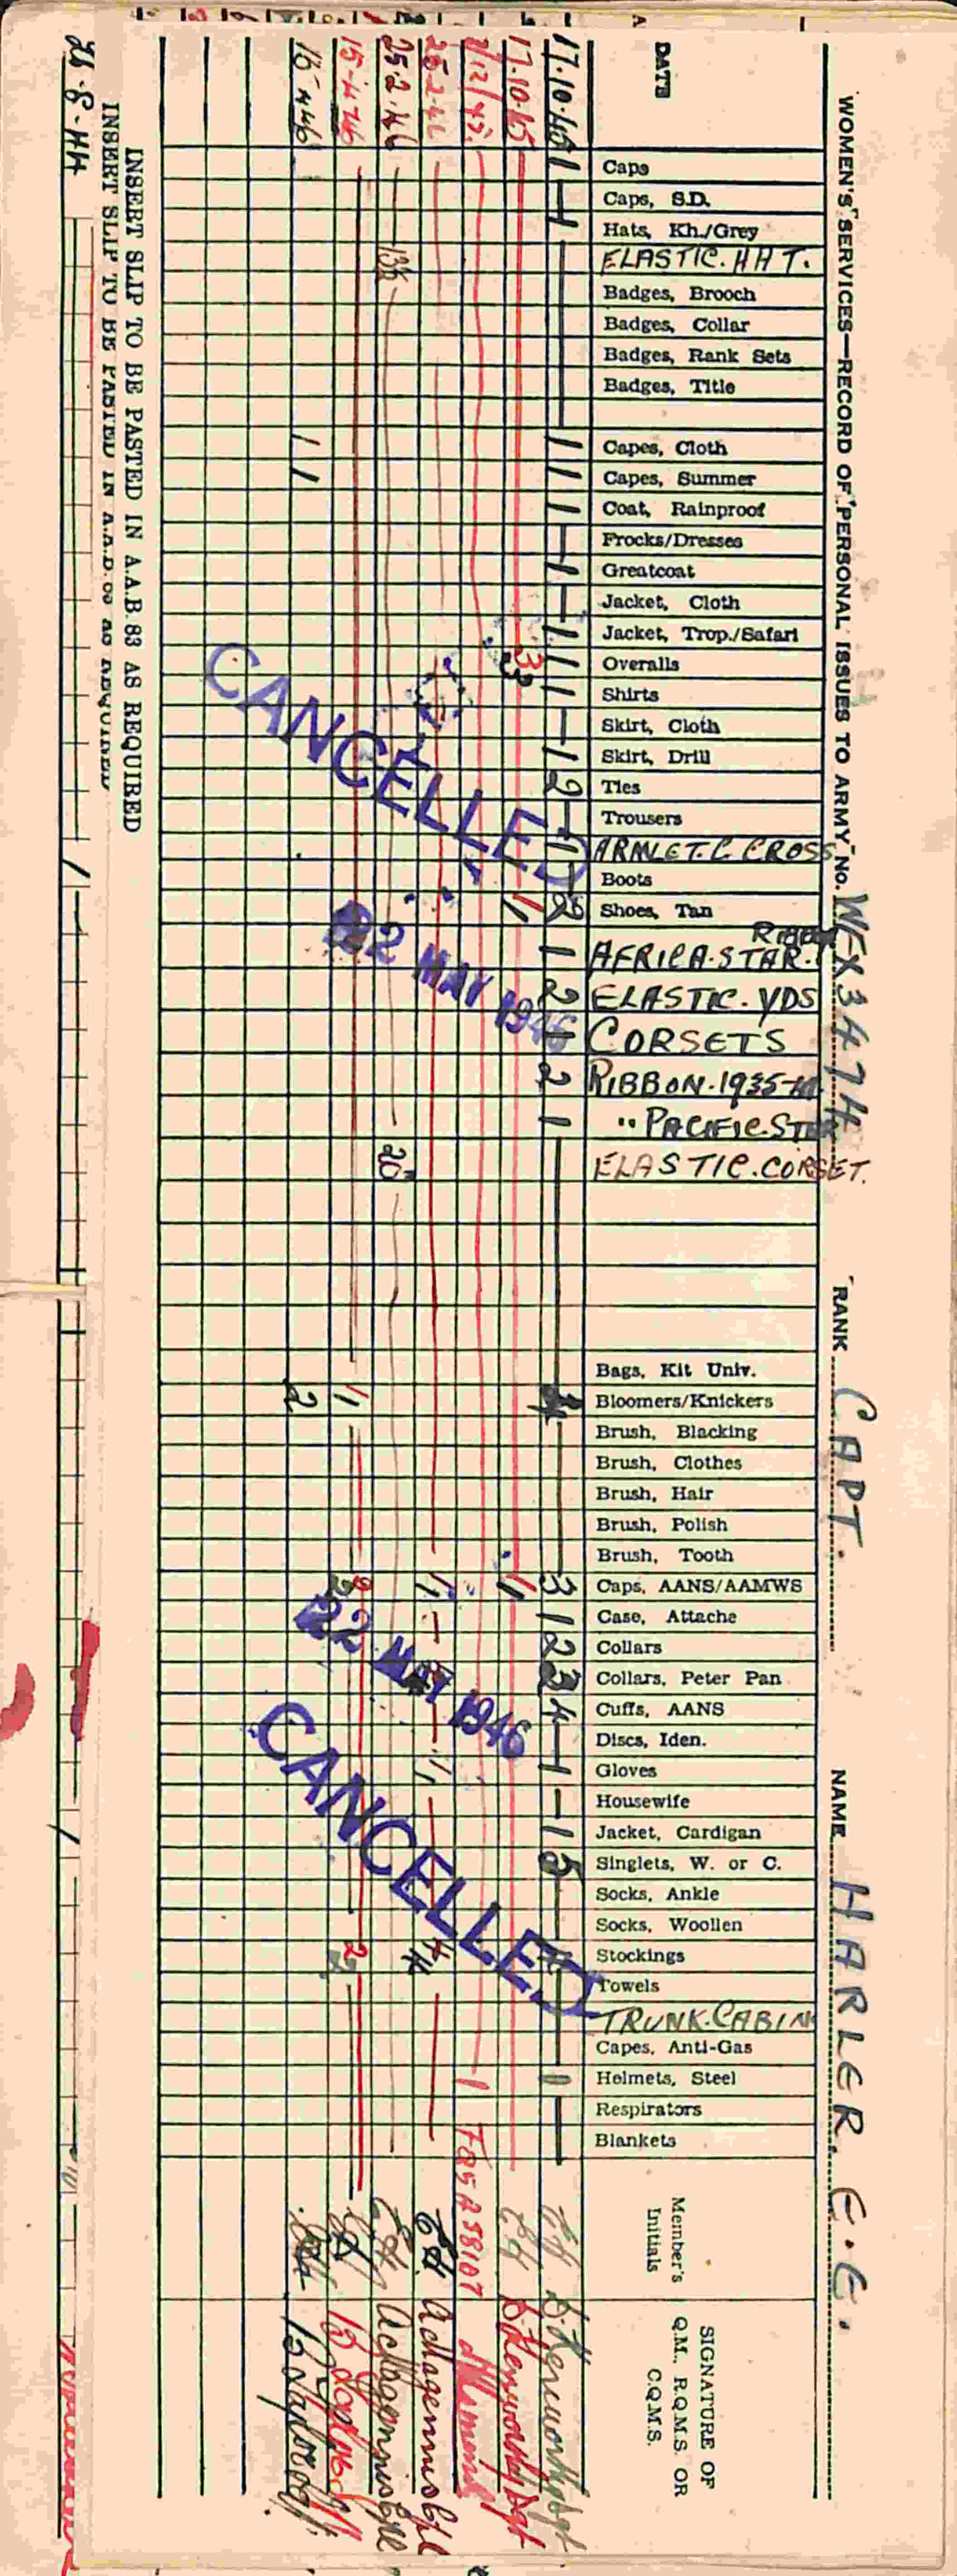 WOMEN'S SERVICES—RECORD OF PERSONAL ISSUES TO ARMY No. WFX3474 RANK CAPT. NAME HARLER E.E.
DATE
Caps
Caps, S.D.
Hats, Kh./Grey
ELASTIC. HAT.
Badges, Brooch
Badges, Collar
Badges, Rank Sets
Badges, Title
Capes, Cloth
Capes, Summer
Coat, Rainproof
Frocks/Dresses
Greatcoat
Jacket, Cloth
Jacket, Trop./Safari
Overalls
Shirts
Skirt, Cloth
Skirt, Drill
Ties
Trousers
ARMLET. C CROSS
Boots
Shoes, Tan
AFRICA. STAR.
ELASTIC. YDS
CORSETS
RIBBON. 1935-
" PACIFIC. STAR
ELASTIC. CORSET.
Bags, Kit Univ.
Bloomers/Knickers
Brush, Blacking
Brush, Clothes
Brush, Hair
Brush, Polish
Brush, Tooth
Caps, AANS/AAMWS
Case, Attache
Collars
Collars, Peter Pan
Cuffs, AANS
Discs, Iden.
Gloves
Housewife
Jacket, Cardigan
Singlets, W. or C.
Socks, Ankle
Socks, Woollen
Stockings
Towels
TRUNK. CABIN
Capes, Anti-Gas
Helmets, Steel
Respirators
Blankets
Member's Initials
SIGNATURE OF Q.M., R.Q.M.S. OR C.Q.M.S.
17.10.45 1 1 1 1 1 1 1 1 1 2 1 2 1 2 1 2 1 4 3 1 2 3 4 1 1 5 4 1
17.10.45 3 1 1
7/12/45 1 F85A58107
25.2.46 1 1 4
25.2.46 20"
15-4-46 1 2 2
15-4-46 1 1 2
CANCELLED
22 MAY 1946
22 MAY 1946
CANCELLED
INSERT SLIP TO BE PASTED IN A.A.B. 83 AS REQUIRED
INSERT SLIP TO BE PASTED IN A.A.B. 83 AS REQUIRED
26-8-44